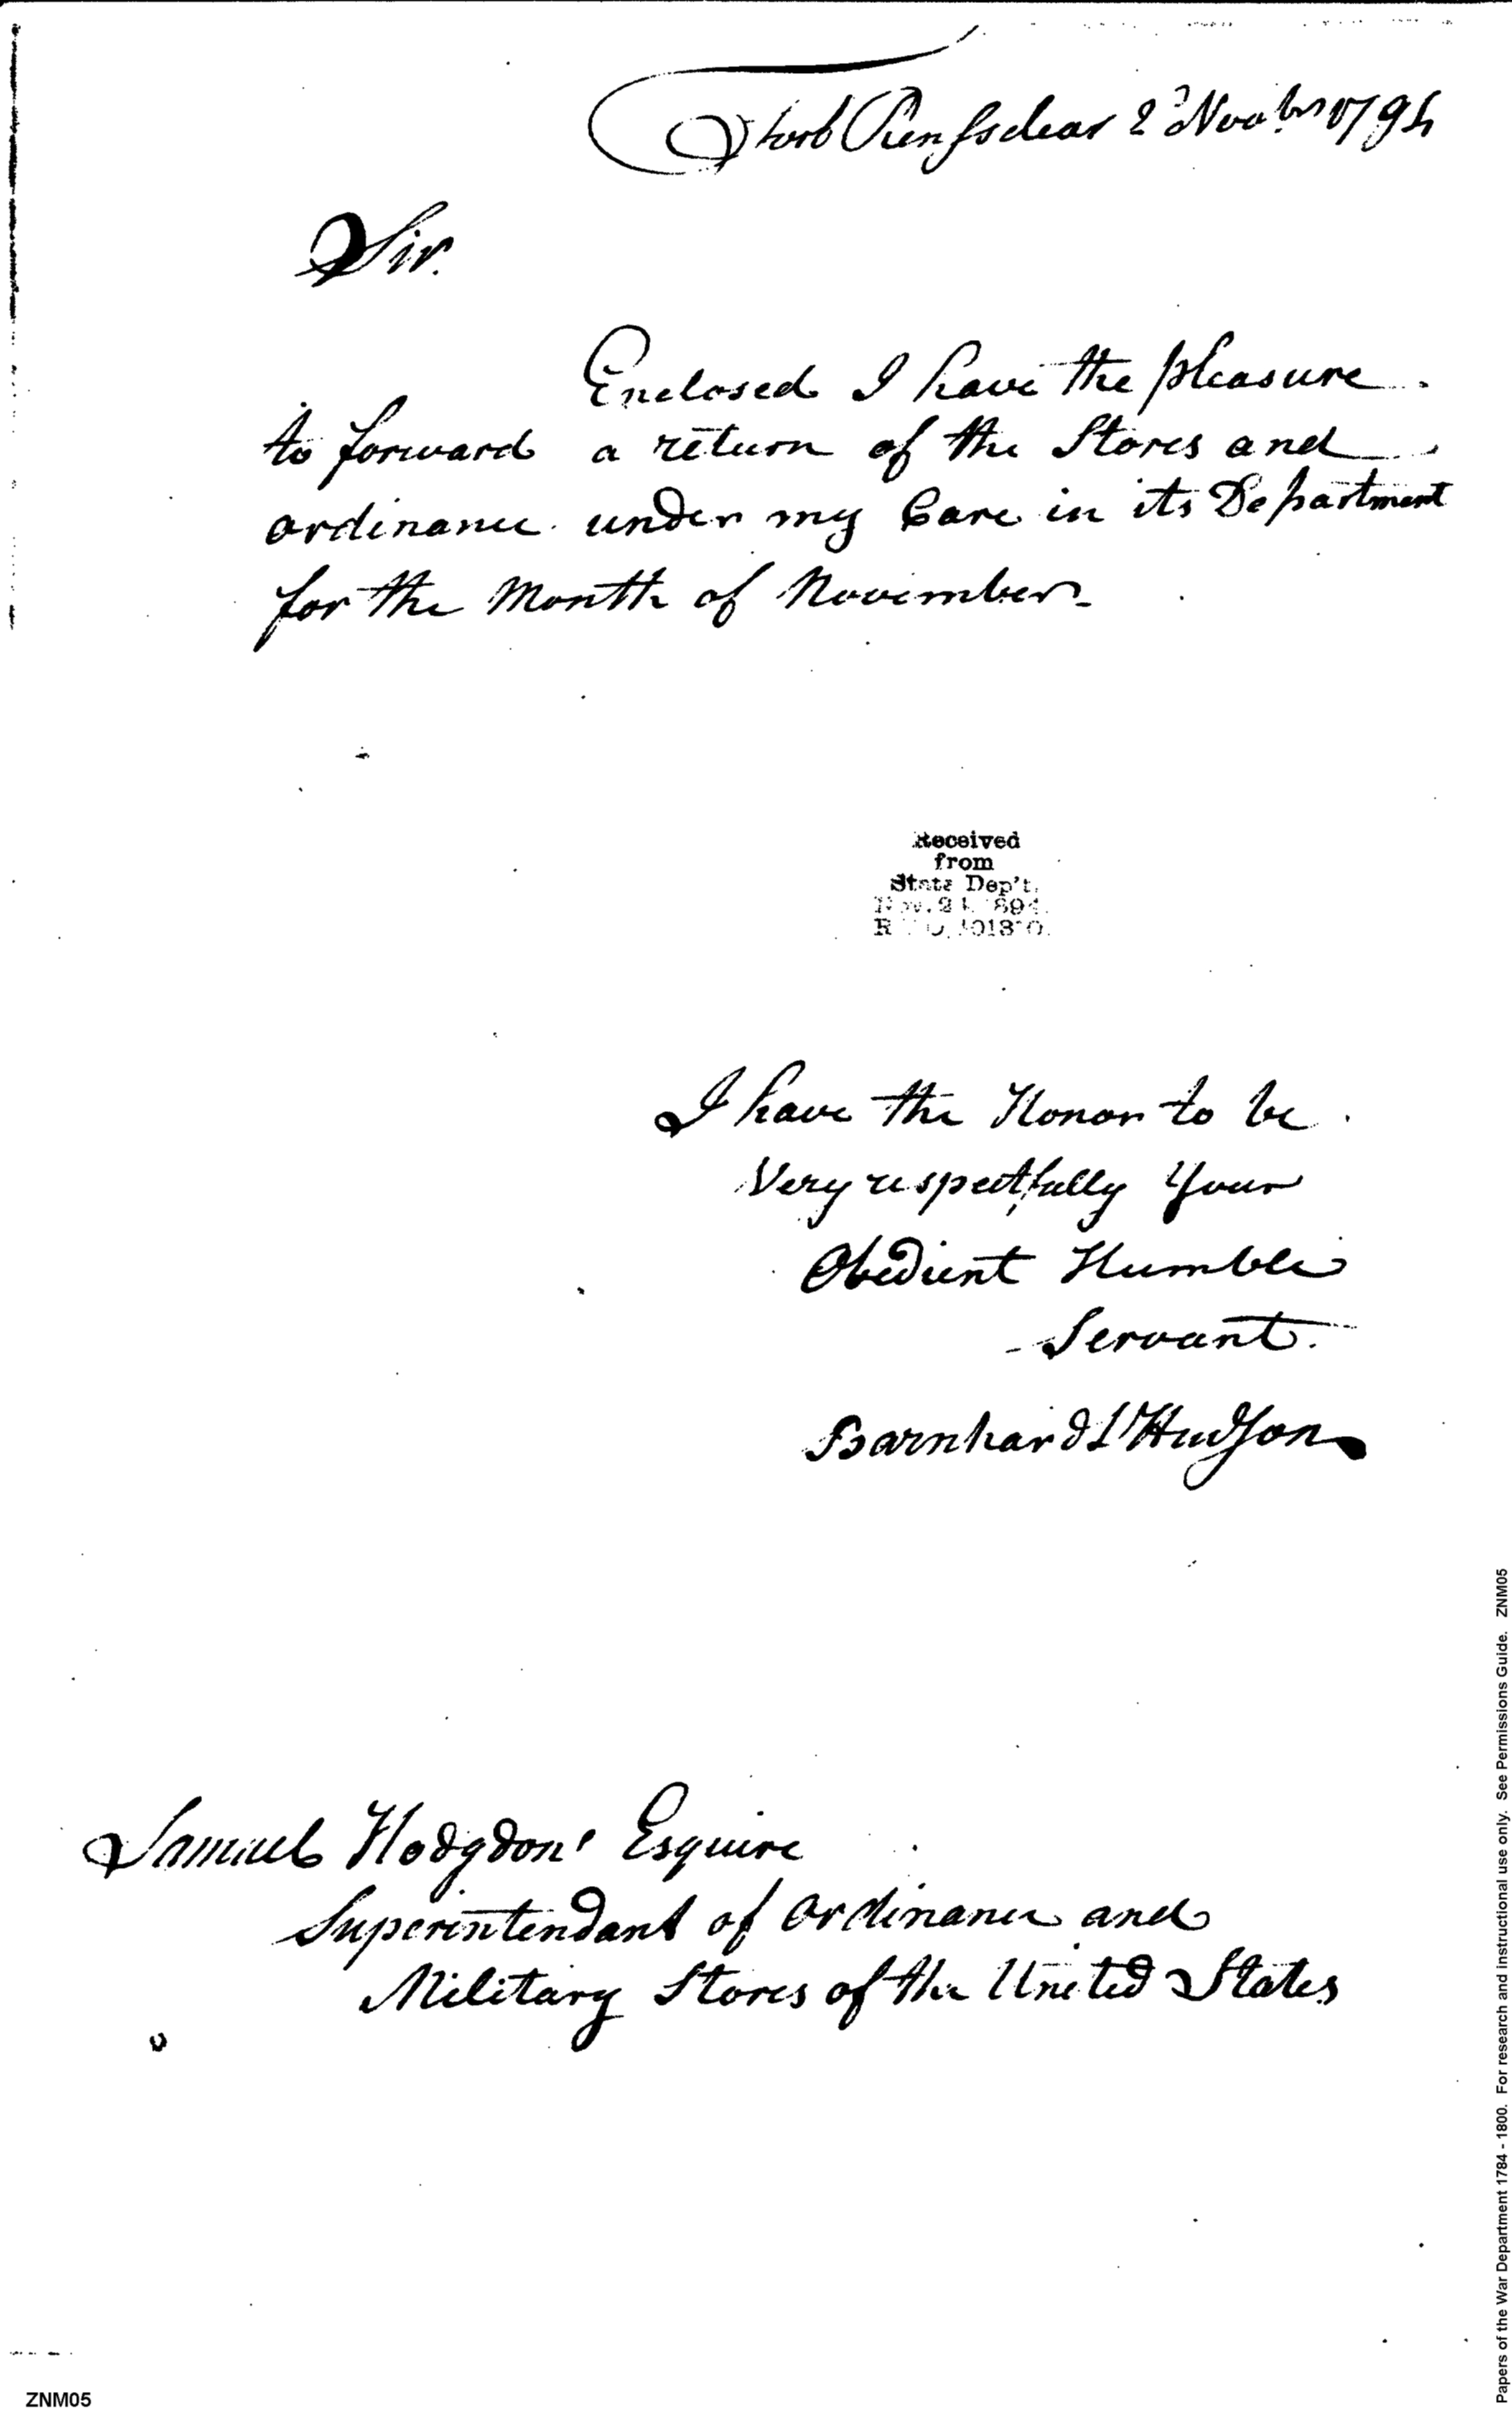 Fort Rensselear 2d Novbr 1794
Sir.
Enclosed I have the pleasure
to forward a return of the Stores and
ordinance under my Care in its Department
for the Month of November
Received
from
State Dep't.
I have the Honor to be
Very respectfully Your
Obedient Humble
Servant.
Barnhard L Hudson
Samuel Hodgdon Esquire
Superintendant of Ordinance and
Military Stores of the United States
ZNM05
Papers of the War Department 1784 - 1800. For research and instructional use only. See Permissions Guide. ZNM05